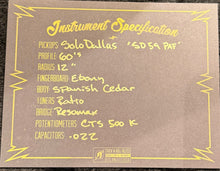 Instrument Specification
PICKUPS SoloDallas "SD59 PAF"
PROFILE 60's
RADIUS 12"
FINGERBOARD Ebony
BODY Spanish Cedar
TUNERS Ratio
BRIDGE Resomax
POTENTIOMETERS CTS 500K
CAPACITORS .022